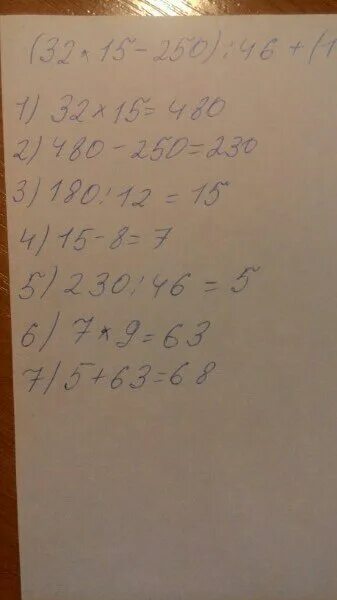 (32 × 15 - 250) : 46 + (1
1) 32 × 15 = 480
2) 480 - 250 = 230
3) 180 : 12 = 15
4) 15 - 8 = 7
5) 230 : 46 = 5
6) 7 × 9 = 63
7) 5 + 63 = 68